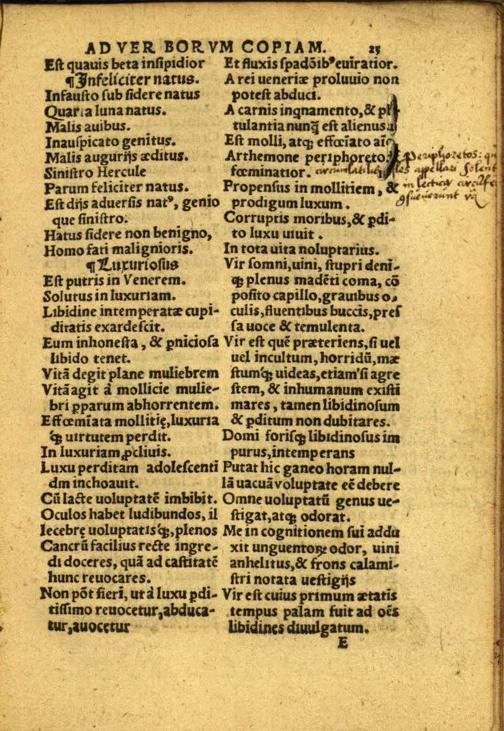 ADVERBORVM COPIAM. 25
Est quauis beta insipidior
¶Infeliciter natus.
Infausto sub sidere natus
Quarta luna natus.
Malis auibus.
Inauspicato genitus.
Malis augurijs æditus.
Sinistro Hercule
Parum feliciter natus.
Est dijs aduersis natꝰ, genio
que sinistro.
Natus sidere non benigno,
Homo fati malignioris.
¶Luxuriosus
Est putris in Venerem.
Solutus in luxuriam.
Libidine intemperatæ cupi-
ditatis exardescit.
Eum inhonesta, & ꝑniciosa
libido tenet.
Vitã degit plane muliebrem
Vitã agit à mollicie mulie-
bri ꝑparum abhorrentem.
Effœmiata mollitię, luxuria
ꝙ uirtutem perdit.
In luxuriam ꝓcliuis.
Luxu perditam adolescenti
dm inchoauit.
Cũ lacte uoluptatẽ imbibit.
Oculos habet ludibundos, il
lecebrę uoluptatisꝙ, plenos
Cancrũ facilius recte ingre-
di doceres, quã ad castitatẽ
hunc reuocares.
Non põt fieri, ut à luxu ꝑdi-
tissimo reuocetur, abduca-
tur, auocetur
Et fluxis spadõibꝰ euiratior.
A rei ueneriæ proluuio non
potest abduci.
A carnis inqnamento, & ꝑ
tulantia nunꝗ̃ est alienus.
Est molli, atꝙ effœiato aĩo
Arthemone periphoreto,
fœminatior.
Propensus in mollitiem, &
prodigum luxum.
Corruptis moribus, & ꝑdi-
to luxu uiuit.
In tota uita noluptarius.
Vir somni, uini, stupri deni-
ꝙ plenus madẽti coma, cõ
posito capillo, grauibus o,
culis, fluentibus buccis, pres
sa uoce & temulenta.
Vir est quẽ præteriens, si uel
uel incultum, horridũ, mæ
stumꝙ uideas, etiam'si agre
stem, & inhumanum existi
mares, tamen libidinosum
& ꝑditum non dubitares.
Domi forisꝙ libidinosus im
purus, intemperans
Putat hic ganeo horam nul-
lã uacuã uoluptate eẽ debere
Omne uoluptatũ genus ue-
stigat, atꝙ odorat.
Me in cognitionem sui addu
xit unguentoꝝ odor, uini
anhelitus, & frons calami-
stri notata uestigijs
Vir est cuius primum ætatis
tempus palam fuit ad oẽs
libidines diuulgatum.
E
Periphoretos: qui
appellari solent
in lectica